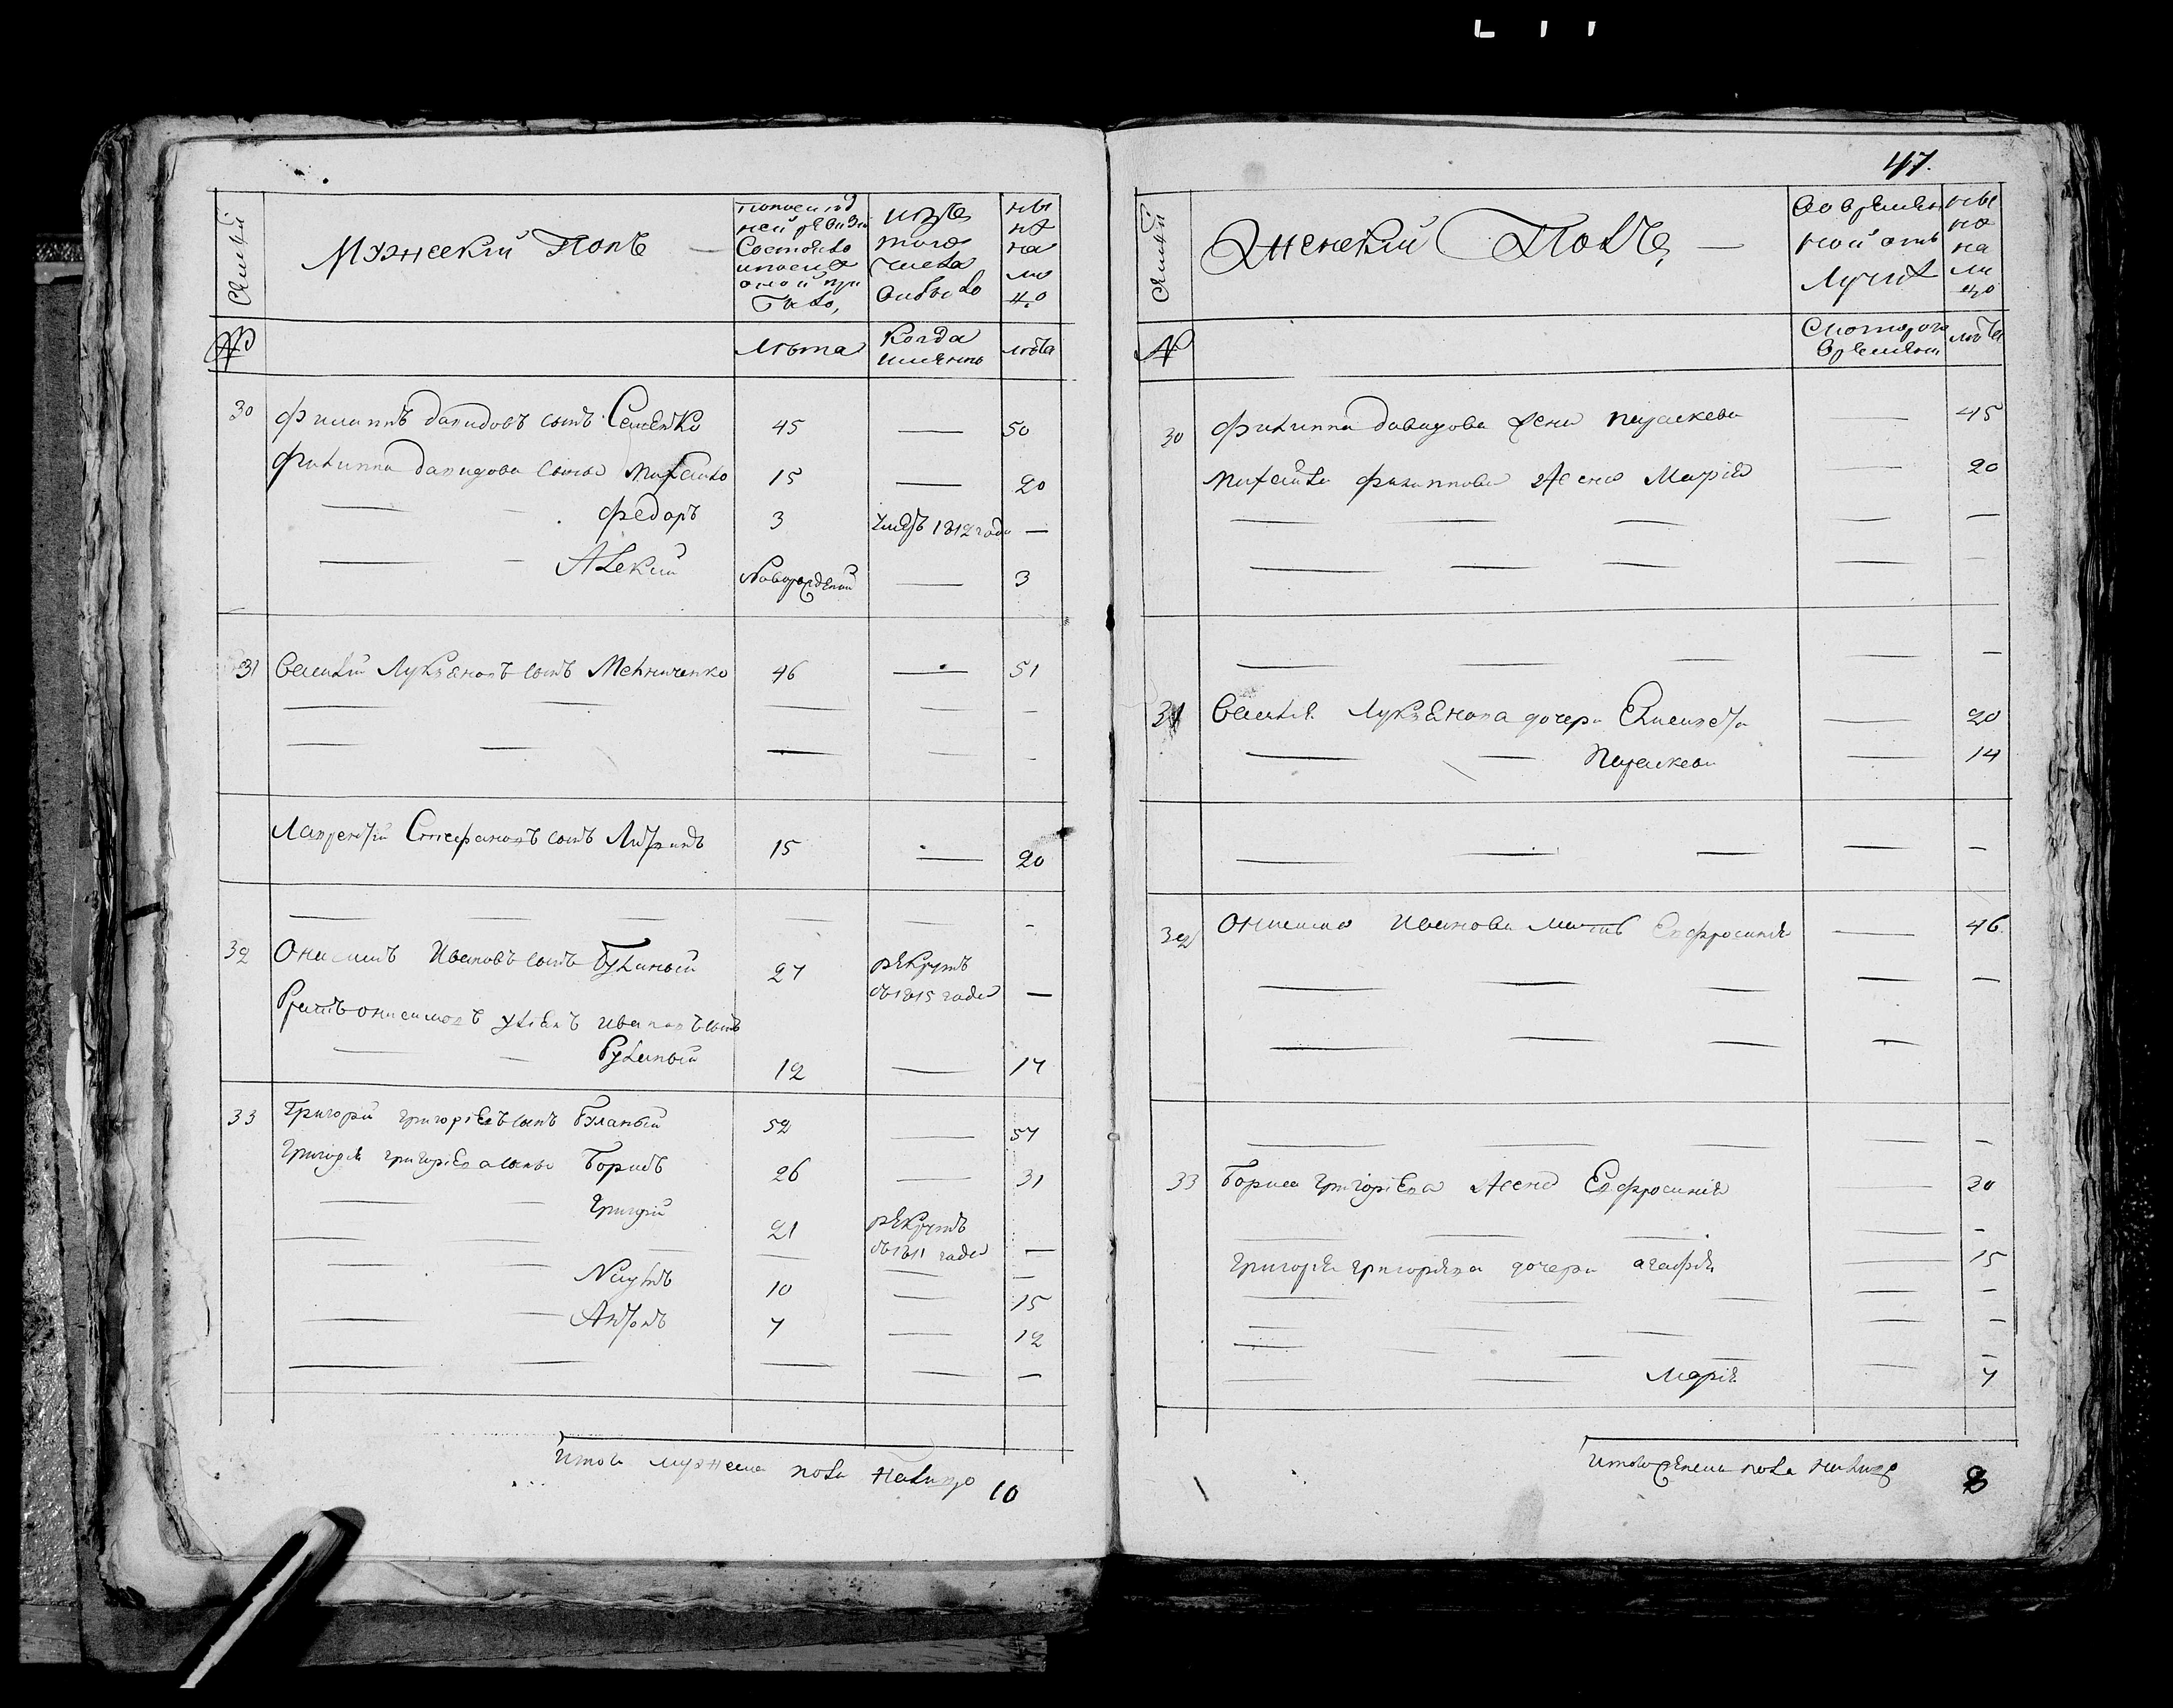 Семьи
Мужеский Полъ
По послѣд
ней ревизіи
Состояло
и послѣ
оной при
было,
изъ
того
числа
выбыло
ны
нѣ
на
ли
цо
№
Лѣта
Когда
имянно
лѣта
30 Филиппъ Давидовъ сынъ Семенко 45 — 50
Филиппа Давидова сынъ Михайло 15 — 20
— — Федоръ 3 умеръ 1812 года —
— — Алексий Новорожденный — 3
31 Василій Лукяновъ сынъ Мельниченко 46 — 51
— — — — —
— — — — —
Лаврентій Стефановъ сынъ 15 — 20
— — — — — —
32 Онисимъ Ивановъ сынъ Буланый 27 рекрутъ
въ 1815 года —
Братъ Онисимовъ Ивановъ сынъ
— — Буланый 12 — 17
33 Григорій Григоріевъ сынъ Буланый 52 — 57
Григорія Григоріева сынъ Борисъ 26 — 31
— — Григорій 21 рекрутъ
въ 1811 года —
— — Наумъ 10 — 15
— — Антонъ 7 — 12
— — — — —
Итого мужеска пола налицо 10
47.
Семьи
Женский Полъ —
Во времен
ной от
лучкѣ
ны
нѣ
на
ли
цо
№
С котораго
времени
лѣта
30 Филиппа Давидова жена Параскева — 45
Михайла Филиппова жена Марія — 20
— — — — —
— — — — —
— — — — —
31 Василія Лукянова дочери Елисавета — 20
— — Параскева — 14
— — — — —
32 Онисима Иванова мать Евфросинія — 46
— — — — —
— — — — —
— — — —
33 Бориса Григоріева жена Евфросинія — 30
— — — — —
Григорія Григоріева дочери Агафія — 15
— — — — —
— — — — —
— — — —
— — Марія — 7
Итого женска пола налицо 8